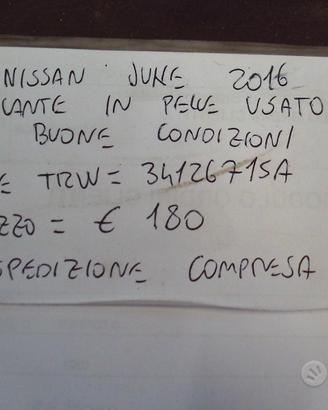 NISSAN JUNE 2016
LANTE IN PELLE USATO
BUONE CONDIZIONI
E TRW = 34126715A
ZZO = € 180
SPEDIZIONE COMPRESA